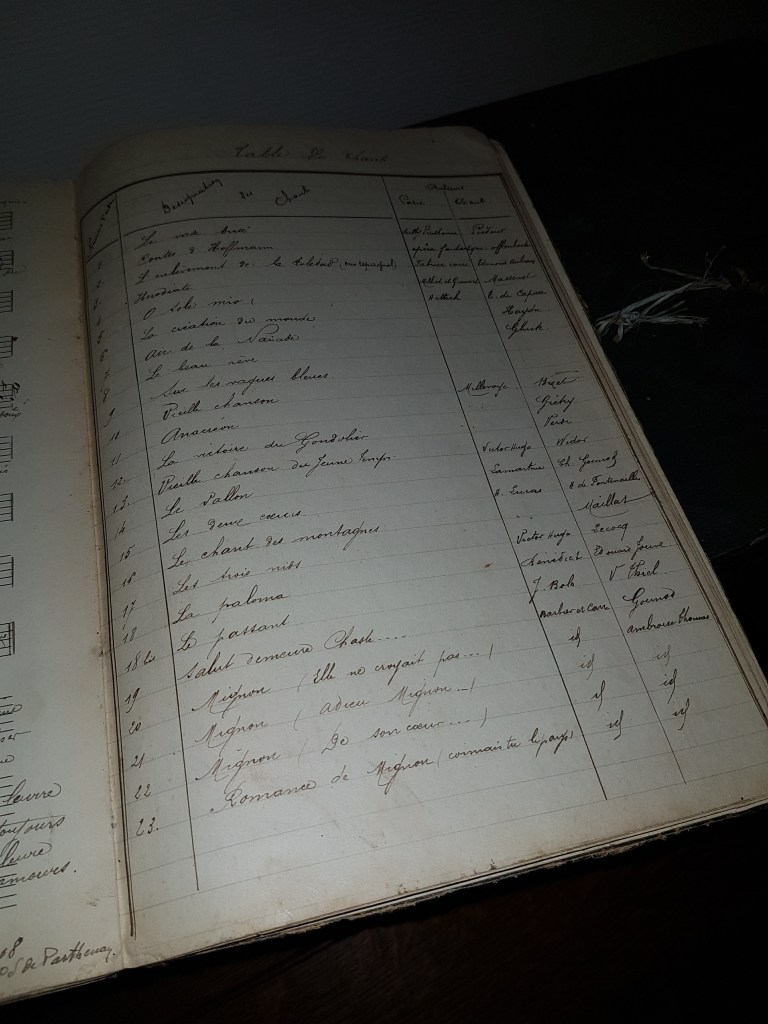 Table du chant
Désignation des Chants
Auteurs
Le vase brisé
Contes d'Hoffmann opéra fantastique offenbach
L'enlèvement de la Toledad
Hérodiade Massenet
O sole mio ! E. di Capua
La création du monde Haydn
Air de la Naïade Gluck
Le beau rêve
8 Sur les vagues bleues
9 Vieille chanson Millevoye Bizet
10 Anacréon Grétry
11 La victoire du Gondolier
12. Vieille chanson du Jeune Temps Victor Hugo Widor
13. Le Vallon Lamartine Ch. Gounod
14 Les deux cœurs H. Lucas H de Fontenailles
15 Le chant des montagnes Maillat
16 Les trois nids Victor Hugo Lecocq
17 La paloma
18 Le passant J. Bols V. Thiel
18 bis Salut demeure Chaste.... Barbier et Carré Gounod
19 Mignon (Elle ne croyait pas...) id ambroise Thomas
20 Mignon (adieu Mignon...) id id
21 Mignon (De son cœur....) id id
22 Romance de Mignon (connais tu le pays) id id
23.
leurre
toujours
amours.
68
de Parthenay.